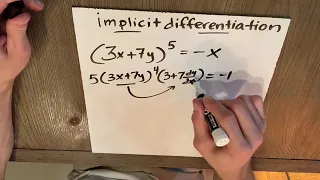 implicit differentiation
(3x+7y)^5 = -x
5(3x+7y)^4(3+7 dy/dx) = -1